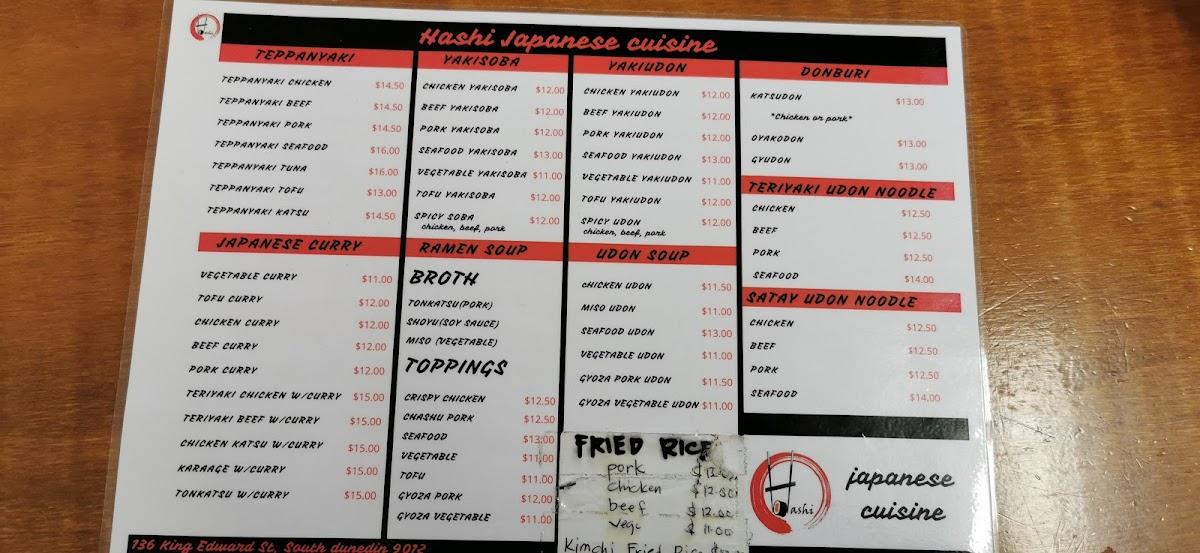 Hashi Japanese cuisine
TEPPANYAKI
TEPPANYAKI CHICKEN $14.50
TEPPANYAKI BEEF $14.50
TEPPANYAKI PORK $14.50
TEPPANYAKI SEAFOOD $16.00
TEPPANYAKI TUNA $16.00
TEPPANYAKI TOFU $13.00
TEPPANYAKI KATSU $14.50
JAPANESE CURRY
VEGETABLE CURRY $11.00
TOFU CURRY $12.00
CHICKEN CURRY $12.00
BEEF CURRY $12.00
PORK CURRY $12.00
TERIYAKI CHICKEN W/CURRY $15.00
TERIYAKI BEEF W/CURRY $15.00
CHICKEN KATSU W/CURRY $15.00
KARAAGE W/CURRY $15.00
TONKATSU W/CURRY $15.00
YAKISOBA
CHICKEN YAKISOBA $12.00
BEEF YAKISOBA $12.00
PORK YAKISOBA $12.00
SEAFOOD YAKISOBA $13.00
VEGETABLE YAKISOBA $11.00
TOFU YAKISOBA $12.00
SPICY SOBA $12.00
chicken, beef, pork
RAMEN SOUP
BROTH
TONKATSU(PORK)
SHOYU(SOY SAUCE)
MISO (VEGETABLE)
TOPPINGS
CRISPY CHICKEN $12.50
CHASHU PORK $12.50
SEAFOOD $13.00
VEGETABLE $11.00
TOFU $11.00
GYOZA PORK $12.00
GYOZA VEGETABLE $11.00
YAKIUDON
CHICKEN YAKIUDON $12.00
BEEF YAKIUDON $12.00
PORK YAKIUDON $12.00
SEAFOOD YAKIUDON $13.00
VEGETABLE YAKIUDON $11.00
TOFU YAKIUDON $12.00
SPICY UDON $12.00
chicken, beef, pork
UDON SOUP
CHICKEN UDON $11.50
MISO UDON $11.00
SEAFOOD UDON $13.00
VEGETABLE UDON $11.00
GYOZA PORK UDON $11.50
GYOZA VEGETABLE UDON $11.00
FRIED RICE
pork
chicken $12.00
beef $12.00
vege $11.00
Kimchi Fried Rice
DONBURI
KATSUDON $13.00
*Chicken or pork*
OYAKODON $13.00
GYUDON $13.00
TERIYAKI UDON NOODLE
CHICKEN $12.50
BEEF $12.50
PORK $12.50
SEAFOOD $14.00
SATAY UDON NOODLE
CHICKEN $12.50
BEEF $12.50
PORK $12.50
SEAFOOD $14.00
Hashi
japanese
cuisine
136 King Edward St, South dunedin 9012